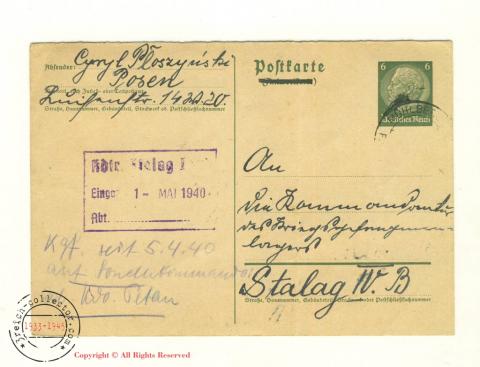 Absender:
Cyryl Płoszyński
Posen
Luisenstr. 14
Straße, Hausnummer, Gebäudeteil, Stockwerk od. Postschließfachnummer
Postkarte
6 6
Deutsches Reich
Kdtr. Stalag
Eing. 1 - MAI 1940
Abt.
Kgf. seit 5.4.40
auf Sonderkommando
An
die Kommandantur
des Kriegsgefangenen-
lagers
Stalag IV. B
Straße, Hausnummer, Gebäudeteil, Stockwerk oder Postschließfachnummer
3reich-collector.com
1933-1945
Copyright © All Rights Reserved